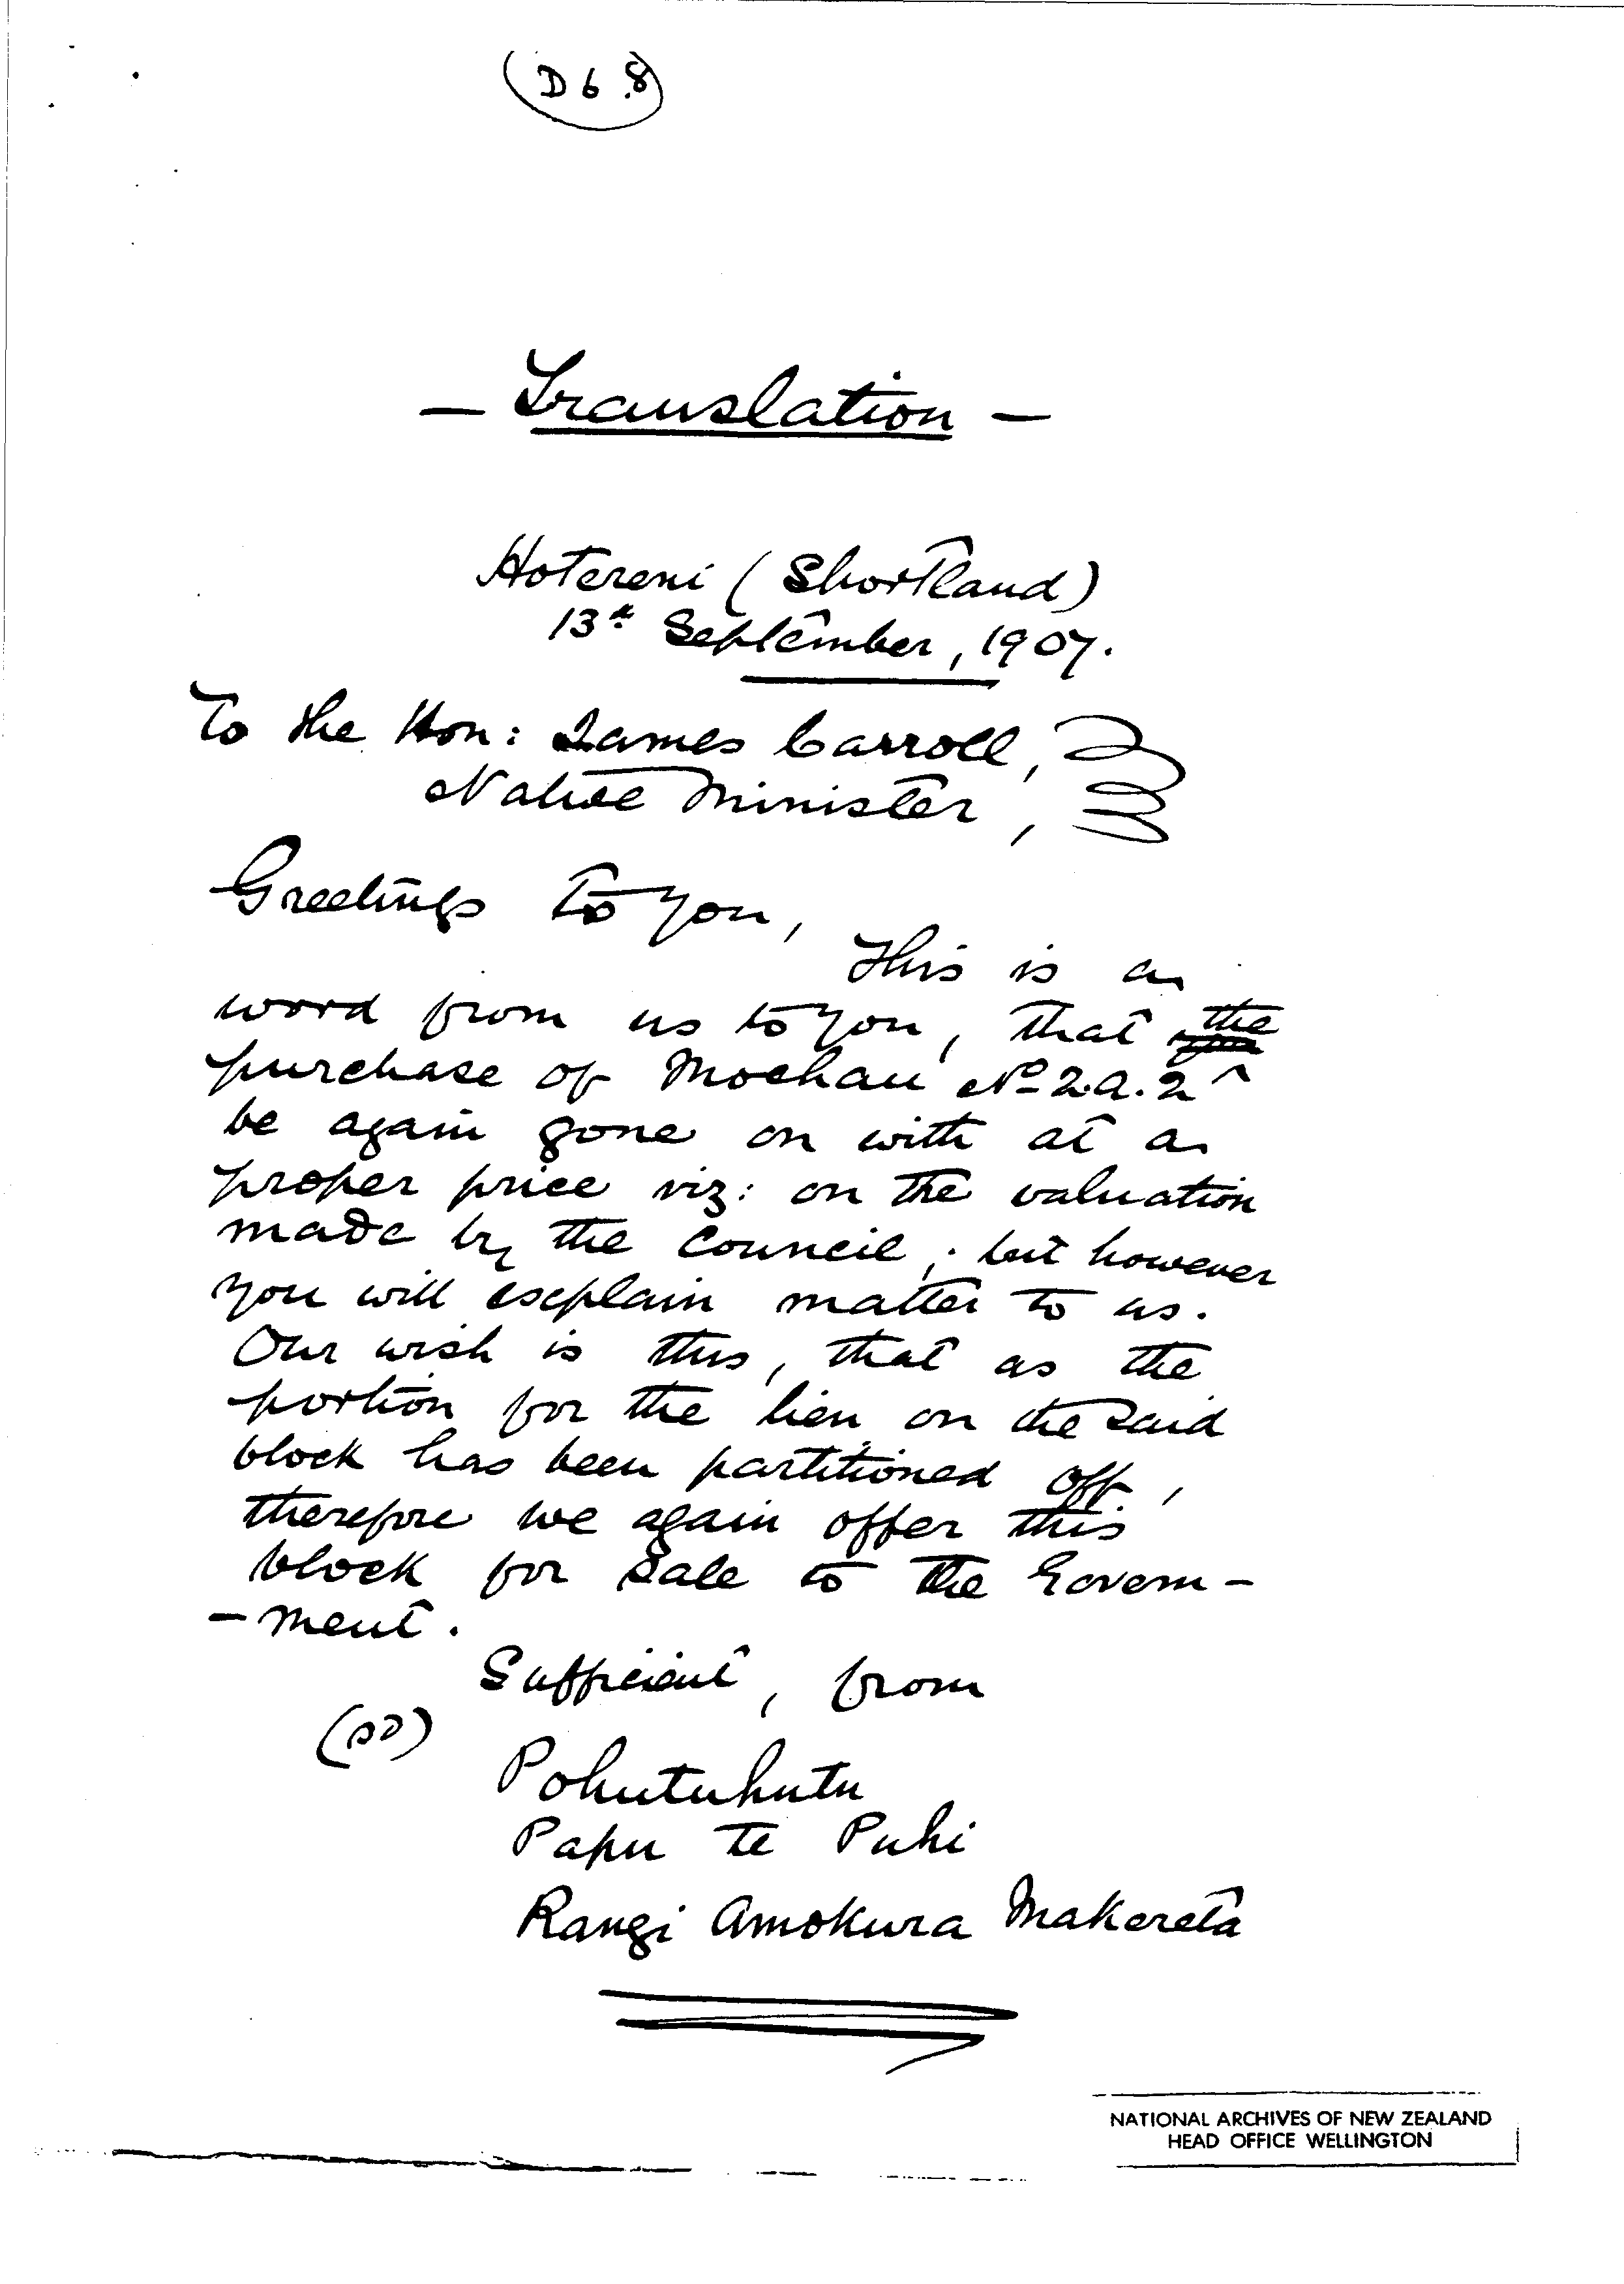 (D6.8)
- Translation -
Hotereni (Shortland)
13th September, 1907.
To the Hon: James Carroll,
Native Minister,
Greetings to you,
This is a
word from us to you, that the
purchase of Moehau No 2.A.2
be again gone on with at a
proper price viz: on the valuation
made by the Council; but however
you will explain matter to us.
Our wish is this, that as the
portion for the lien on the said
block has been partitioned off,
therefore we again offer this
block for sale to the Govern-
-ment.
Sufficient, from
(sd)
Pohutuhutu
Papu te Puhi
Rangi Amokura Makereta
NATIONAL ARCHIVES OF NEW ZEALAND
HEAD OFFICE WELLINGTON